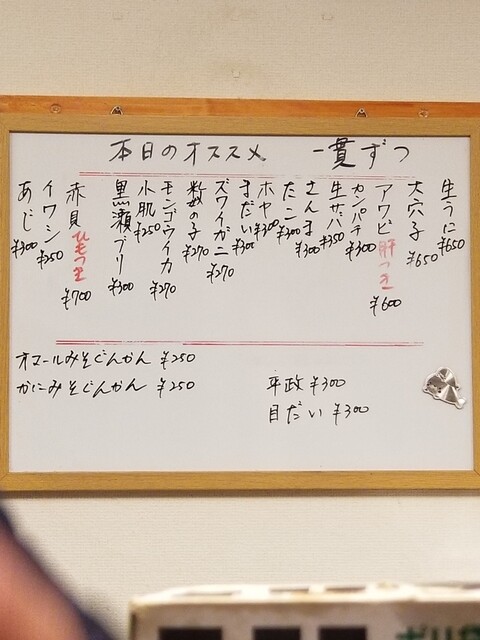 本日のオススメ 一貫ずつ
生うに ¥650
大穴子 ¥650
アワビ 肝つき ¥600
カンパチ ¥300
生サバ ¥350
さんま ¥300
たこ ¥300
ホヤ ¥300
まだい ¥300
ズワイガニ ¥270
数の子 ¥270
モンゴウイカ ¥270
小肌 ¥250
黒瀬ブリ ¥300
赤貝 ひもつき ¥700
イワシ ¥250
あじ ¥300
オマールみそぐんかん ¥250
かにみそぐんかん ¥250
平政 ¥300
目だい ¥300